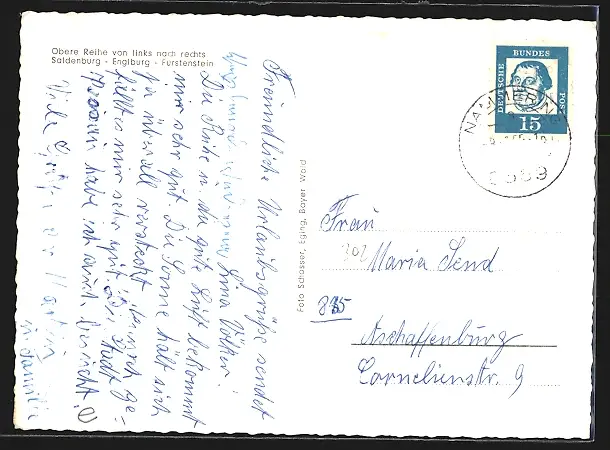 Obere Reihe von links nach rechts
Saldenburg - Englburg - Fürstenstein
Freundliche Urlaubsgrüße sendet
Irma Völker!
Die Ruhe u. die gute Luft bekommt
mir sehr gut. Die Sonne hält sich
ja überall versteckt, dennoch ge-
fällt es mir sehr gut. Die Stadt
Passau habe ich auch besucht.
Viele Grüße
Foto Schosser, Eging, Bayer Wald
DEUTSCHE
BUNDES
POST
15
NAMMERING
Frau
Maria Send
835
Aschaffenburg
Cornelienstr. 9